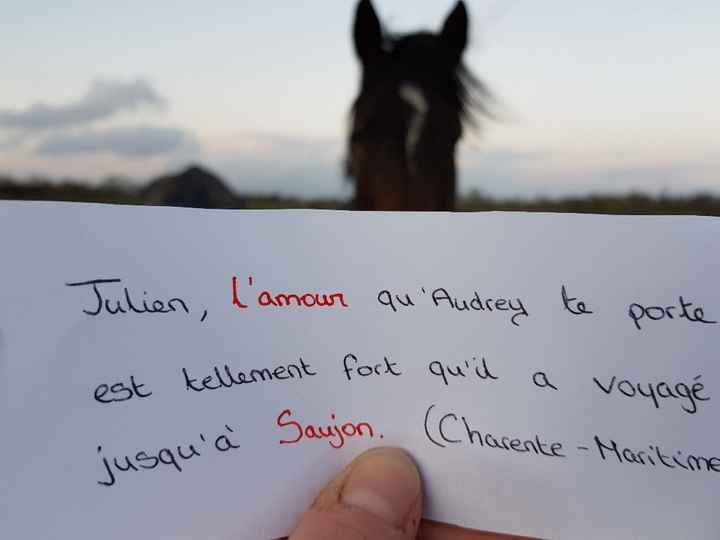 Julien, l'amour qu'Audrey te porte
est tellement fort qu'il a voyagé
jusqu'à Saujon. (Charente-Maritime